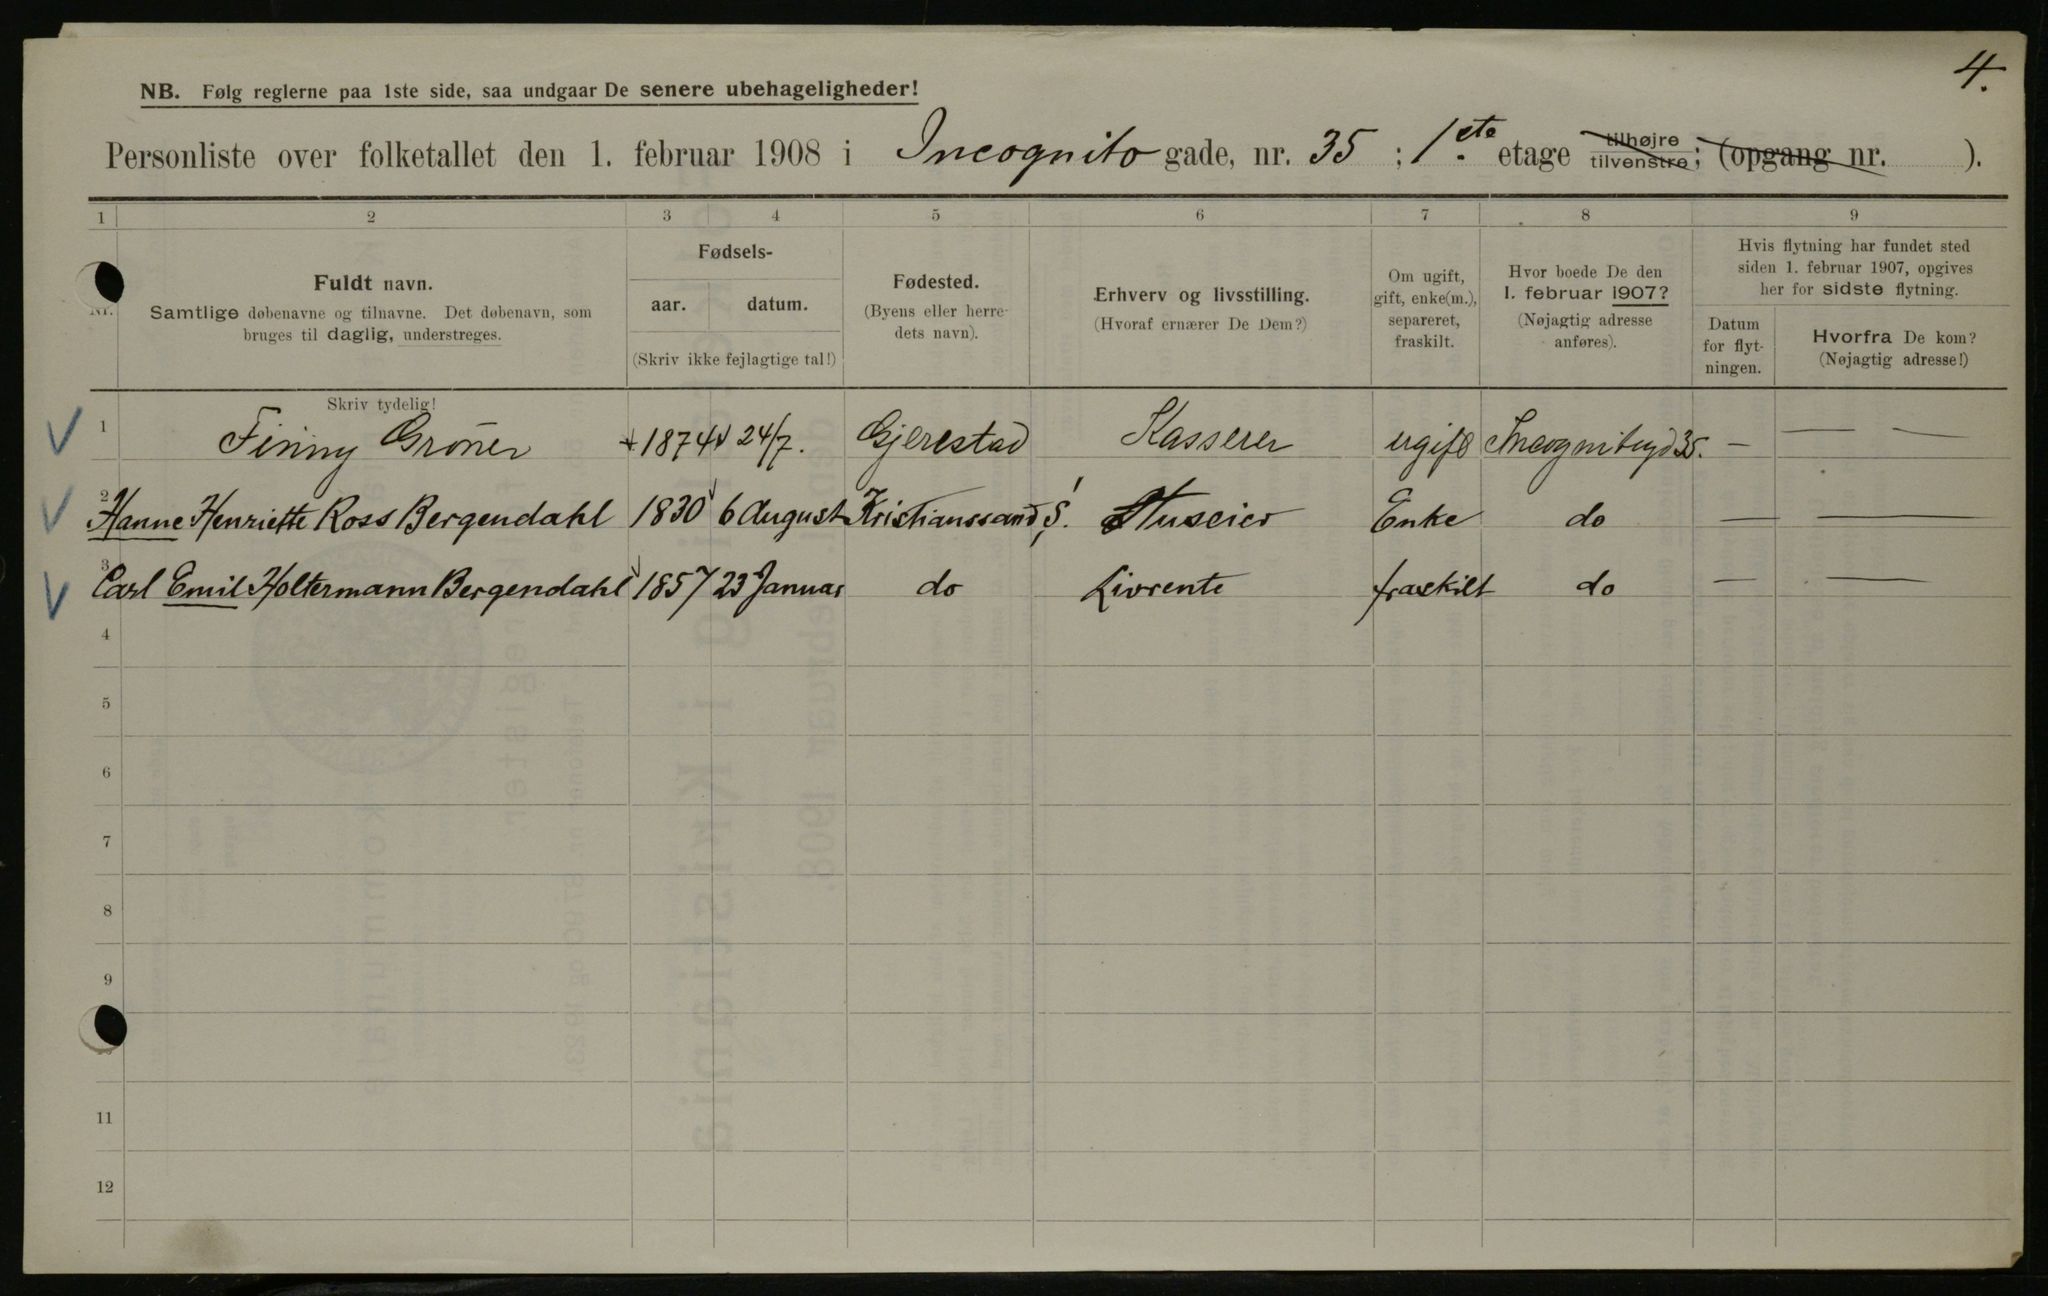 4.
NB. Følg reglerne paa 1ste side, saa undgaar De senere ubehageligheder!
Personliste over folketallet den 1. februar 1908 i Incognito gade, nr. 35 ; 1ste etage tilhøjre tilvenstre; (opgang nr. ).
1 2 3 4 5 6 7 8 9
Nr.
Fuldt navn.
Samtlige døbenavne og tilnavne. Det døbenavn, som
bruges til daglig, understreges.
Skriv tydelig!
Fødsels-
aar. datum.
(Skriv ikke fejlagtige tal!)
Fødested.
(Byens eller herre-
dets navn).
Ærhverv og livsstilling.
(Hvoraf ernærer De Dem?)
Om ugift,
gift, enke(m.),
separeret,
fraskilt.
Hvor boede De den
1. februar 1907?
(Nøjagtig adresse
anføres).
Hvis flytning har fundet sted
siden 1. februar 1907, opgives
her for sidste flytning.
Datum
for flyt-
ningen.
Hvorfra De kom?
(Nøjagtig adresse!)
1 Finny Grøner 1874 24/7. Gjerestad Kasserer ugift Incognitogd 35. — — —
2 Hanne Henriette Ross Bergendahl 1830 6 August Kristianssand S. Huseier Enke do — —
3 Carl Emil Holtermann Bergendahl 1857 23 Januar do Livrente fraskilt do — —
4
5
6
7
8
9
11
12